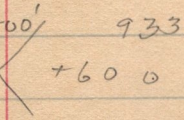 00' 933
+600